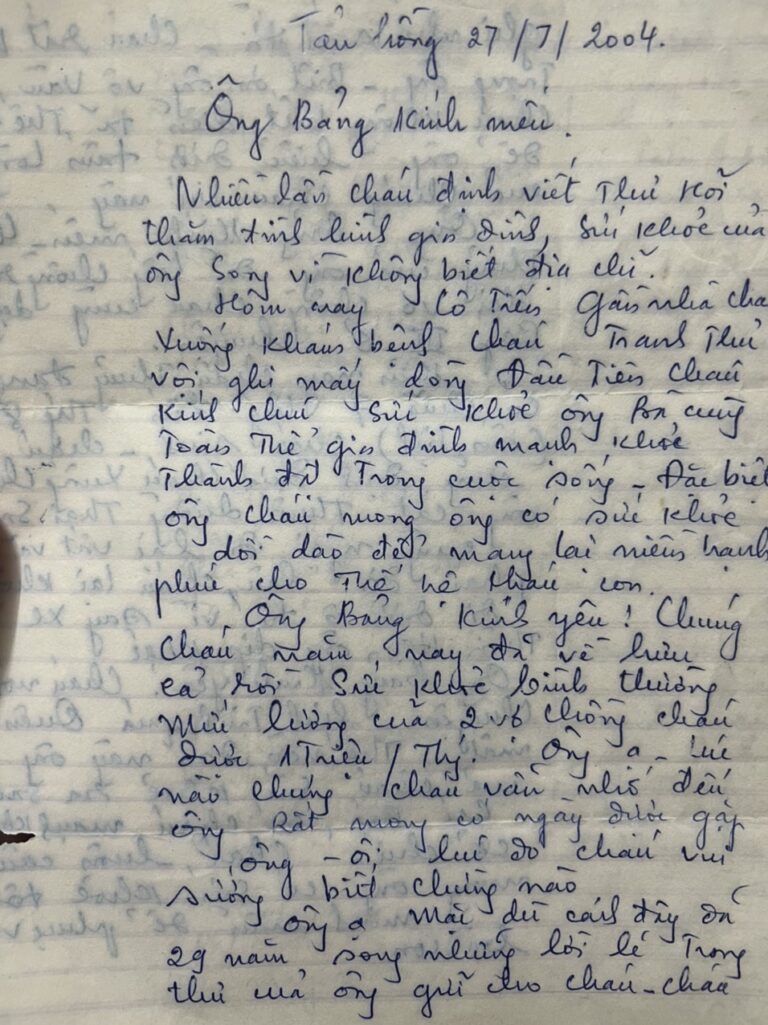 Tân Trồng 27/7/2004.
Ông Bảng Kính mến.
Nhiều lần cháu định viết Thư Hỏi
thăm tình hình gia đình, Sức khoẻ của
ông Song vì không biết địa chỉ.
Hôm nay Cô Tiến Gần nhà chá
Xuống khám bệnh cháu Tranh Thủ
vội ghi mấy dòng Đầu Tiên cháu
kính chúc Sức khoẻ ông Bà cùng
Toàn Thể gia đình mạnh khoẻ
Thành đạt Trong cuộc sống - Đặc biệt
ông cháu mong ông có sức khoẻ
dồi dào để mang lại niềm hạnh
phúc cho Thế hệ cháu con.
Ông Bảng Kính yêu! Chúng
cháu năm nay đã về hưu
cả rồi Sức khoẻ bình thường
Mức lương của 2 vợ chồng cháu
được 1 Triệu / Thg. Ông ạ - Lúc
nào chúng cháu vẫn nhớ đến
ông Rất mong có ngày được gặp
ông - ôi lúc đó cháu vui
sướng biết chừng nào
ông ạ Mặc dù cách đây đã
29 năm song những lời lẽ Trong
thư của ông gửi cho cháu - cháu